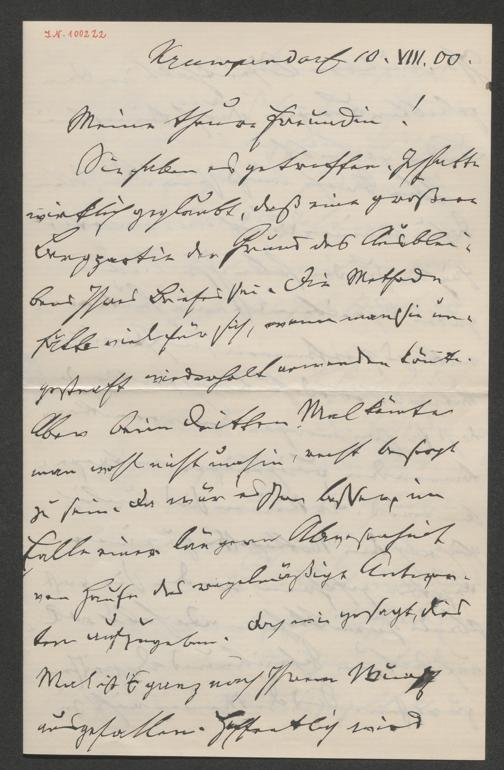 I.N. 100222
Krumpendorf 10. VIII. 00.
Meine theure Freundin!
Sie haben es getroffen. Ich hatte
wirklich geglaubt, daß eine größere
Bergpartie der Grund des Ausblei-
bens Ihres Briefes sei. Die Methode
hätte viel für sich, wenn man sie un-
gestraft wiederholt anwenden könnte.
Aber beim dritten Mal könnte
man wohl nicht umhin, recht besorgt
zu sein. Da wär es schon besser, im
Falle einer längern Abwesenheit
von Hause das regelmäßige Antwor-
ten aufzugeben. Doch wie gesagt, das
Mal ist's ganz nach Ihrem Wunsch
ausgefallen. Hoffentlich wird